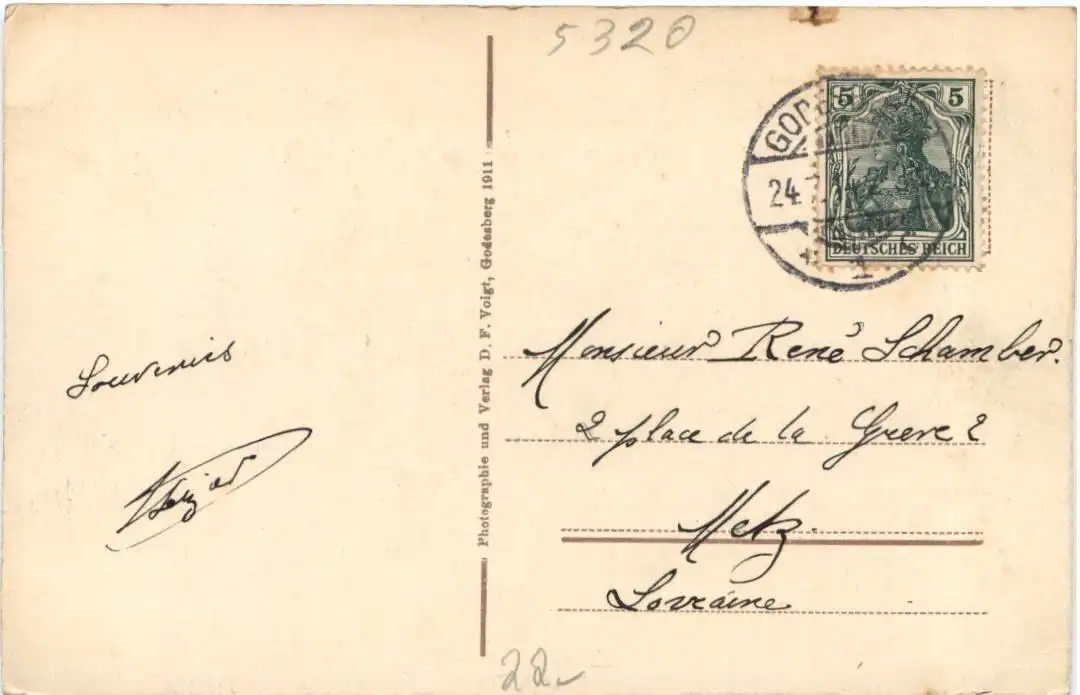 5320
5 5
DEUTSCHES REICH
GODE
24.
1
Souvenirs
Photographie und Verlag D. F. Voigt, Godesberg 1911
Monsieur René Schamber.
2 place de la Greve 2
Metz.
Lorraine
22.-